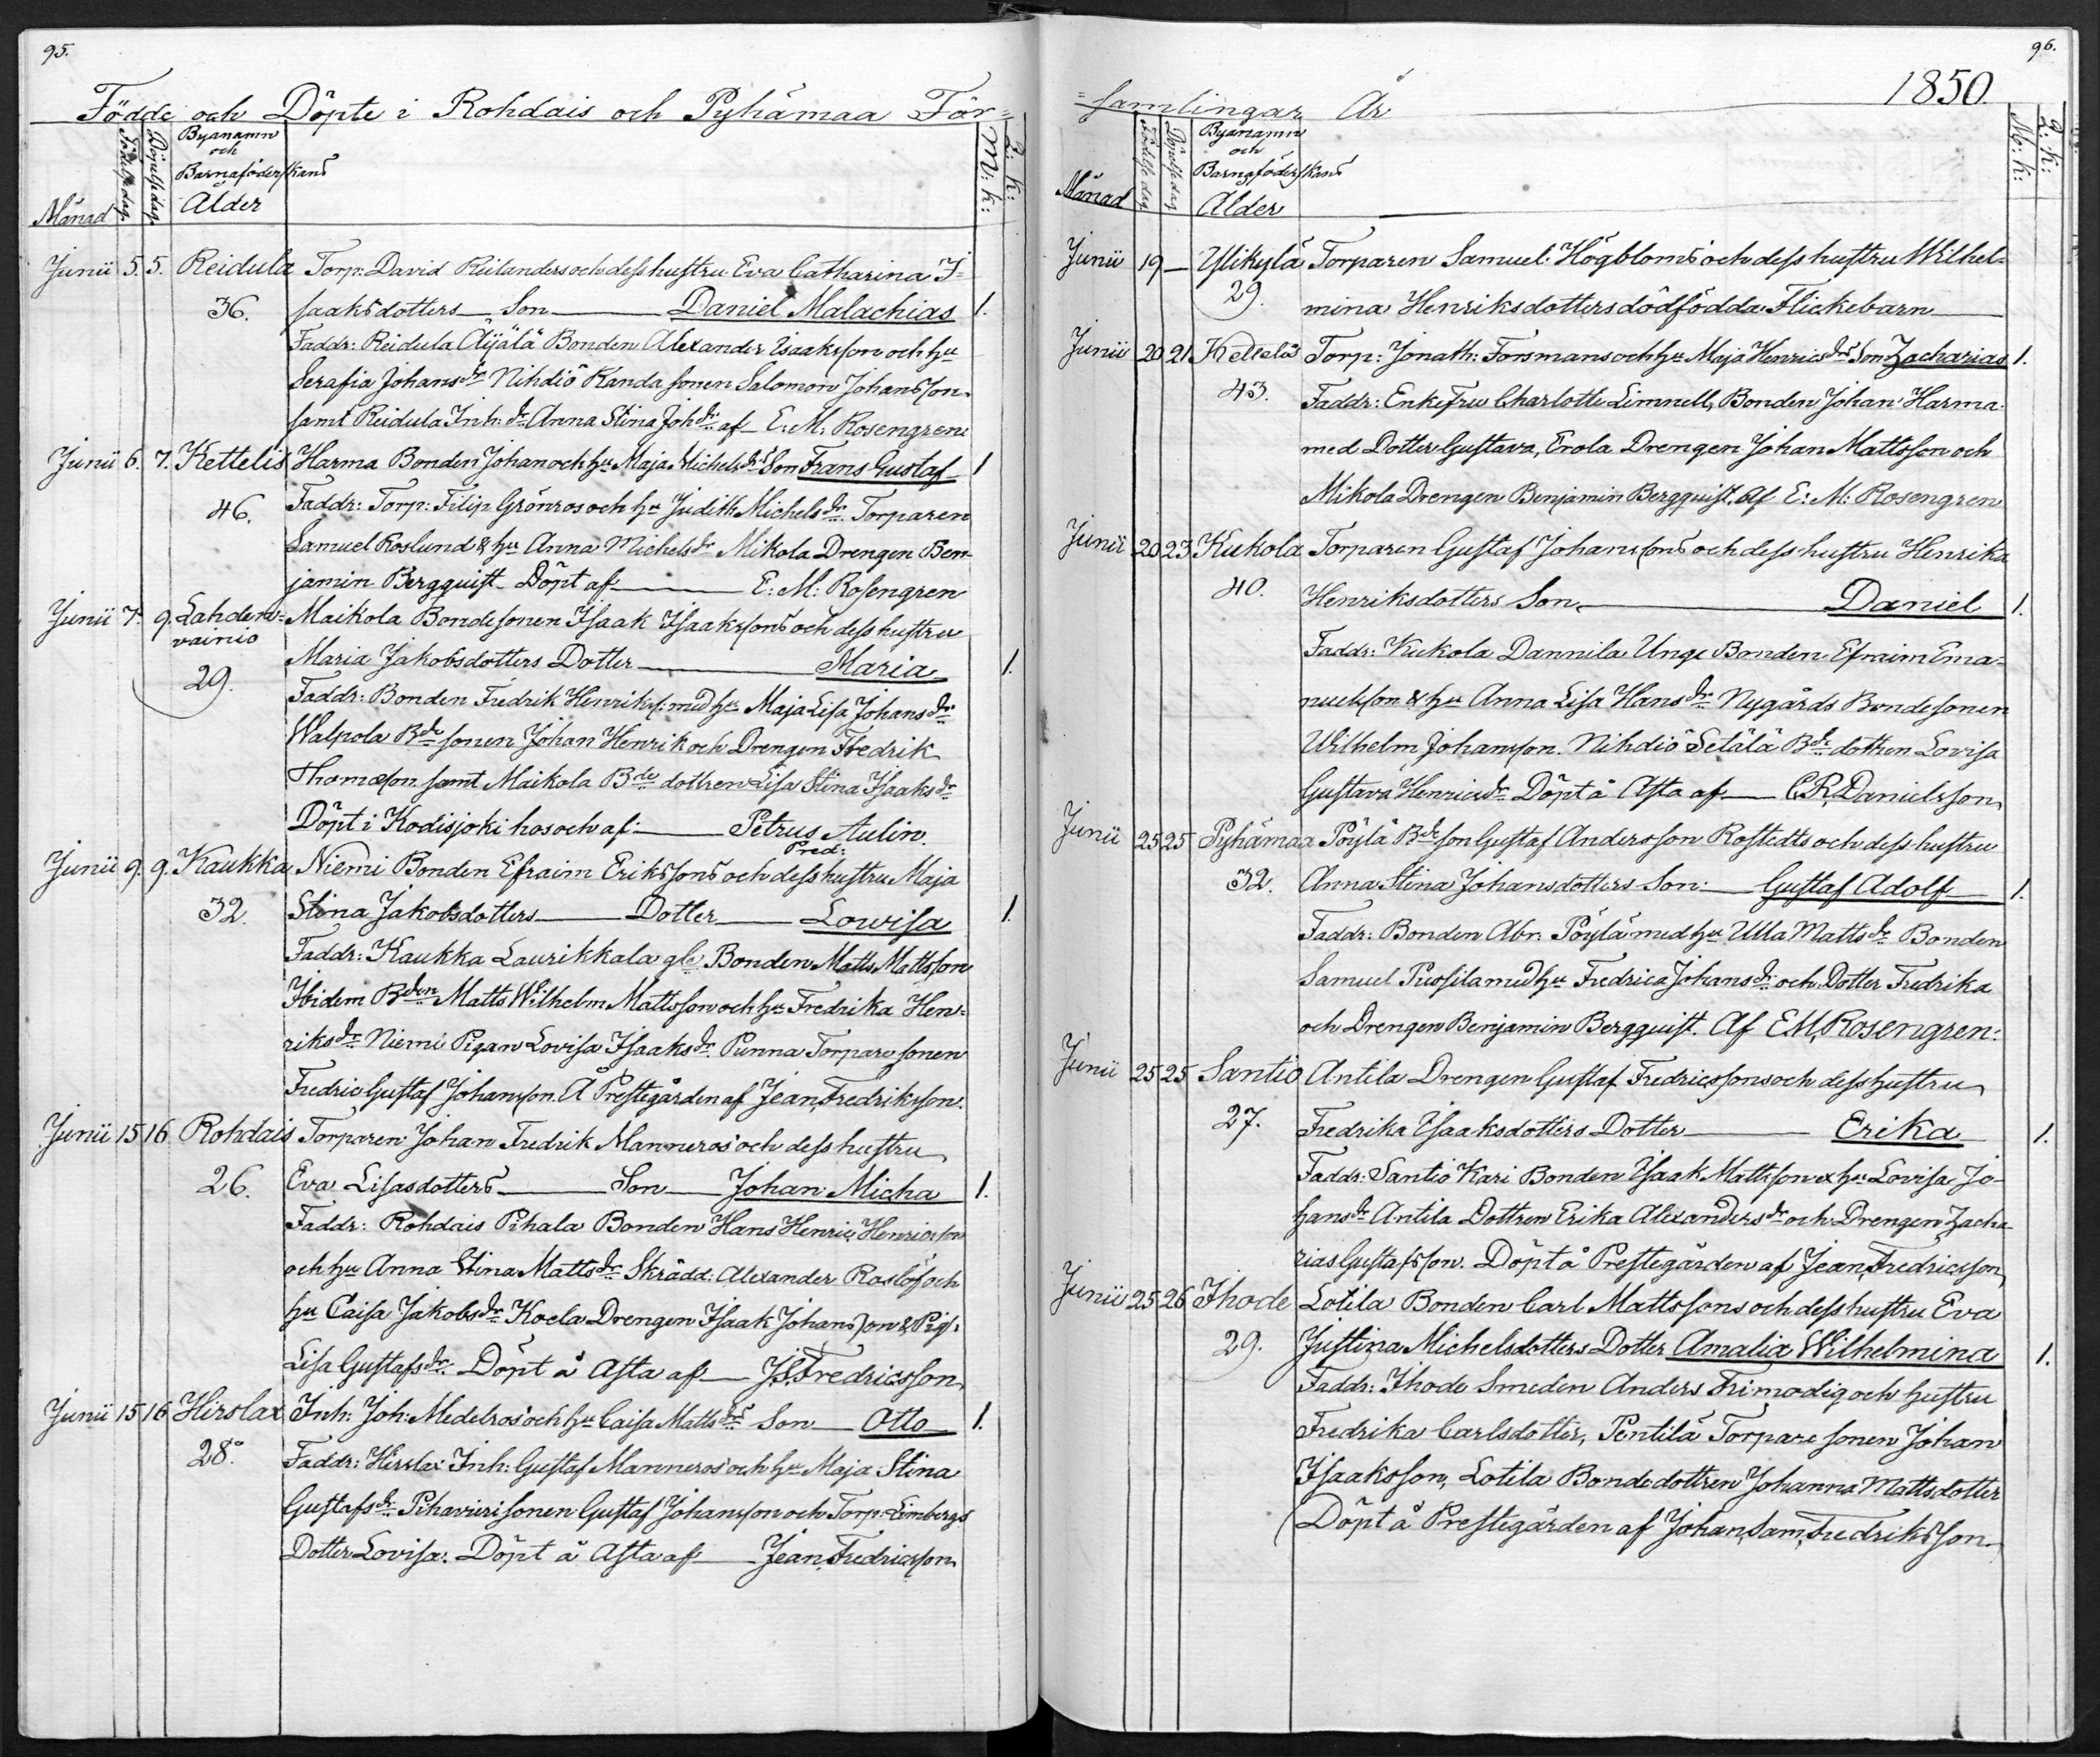 95.
Födde och Döpte i Rohdais och Pyhämaa För=
Månad
Födelsedag.
Döpelsedag.
Byanamn
och
Barnaföderskans
Ålder
M: k:
Q: k:
Junii 5. 5. Reidula Torp: David Reilanders och dess hustru Eva Catharina I=
36. saaksdotters Son Daniel Malachias 1.
Faddr: Reidula Äijälä Bonden Alexander Isaaksson och hu
Serafia Johansdr Nihdiö Randa sonen Salomon Johansson
samt Reidula Inh: dr Anna Stina Johdr af E: M: Rosengren
Junii 6. 7. Kettelis Harma Bonden Johan och hu Maja Michelsdrs Son Frans Gustaf 1
46. Faddr: Torp: Filip Grönros och hu Judith Michelsdr Torparen
Samuel Roslund & hu Anna Michelsdr Mikola Drengen Ben-
jamin Bergquist Döpt af E: M: Rosengren
Junii 7. 9. Lahden= Maikola Bondesonen Isaak Isaakssons och dess hustru
vainio
Maria Jakobsdotters Dotter Maria 1.
29.
Faddr: Bonden Fredrik Henrikss: med hu Maja Lisa Johansdr
Walpola Bde sonen Johan Henrik och Drengen Fredrik
Thomasson samt Maikola Bde dottren Lisa Stina Isaaksdr
Döpt i Kodisjoki hos och af Petrus Aulin.
Pred:
Junii 9. 9. Kaukka Niemi Bonden Efraim Erikssons och dess hustru Maja
32. Stina Jakobsdotters Dotter Lowisa 1.
Faddr: Kaukka Laurikkala gle Bonden Matts Mattsson
Ibidem Bden Matts Wilhelm Mattsson och hu Fredrika Hen=
riksdr Niemi Pigan Lovisa Isaaksdr Punna Torpare sonen
Fredric Gustaf Johansson. Å Prestegården af Jean Fredriksson.
Junii 15 16 Rohdais Torparen Johan Fredrik Manneros och dess hustru
26. Eva Lisasdotters Son Johan Micha 1.
Faddr: Rohdais Pihala Bonden Hans Henric Henricsson
och hu Anna Stina Mattsdr Skrädd: Alexander Roslöf och
hu Caisa Jakobsdr Koela Drengen Isaak Johansson & Pig:
Lisa Gustafsdr. Döpt å Asta af J. S. Fredricsson
Junii 15 16 Hirslax Inh: Joh: Medelros och hu Caisa Mattsdrs Son Otto 1.
28. Faddr: Hirslax Inh: Gustaf Manneros och hu Maja Stina
Gustafsdr Pihavieri sonen Gustaf Johansson och Torp: Limbergs
Dotter Lovisa. Döpt å Asta af Jean Fredricsson
96.
=samlingar År 1850.
Månad
Födelsedag
Döpelsedag
Byanamn
och
Barnaföderskans
Ålder
M: k:
Q: k:
Junii 19 — Ylikylä Torparen Samuel Högbloms och dess hustru Wilhel=
29. mina Henriksdotters dödfödda Flickebarn
Junii 20 21 Kettelis Torp: Jonath: Forsmans och hu Maja Henricsdrs Son Zacharias 1.
43. Faddr: Enkefru Charlotte Limnell, Bonden Johan Harma
med Dotter Gustava, Erola Drengen Johan Mattsson och
Mikola Drengen Benjamin Bergquist. Af E: M: Rosengren
Junii 20 23 Kukola Torparen Gustaf Johanssons och dess hustru Henrika
40. Henriksdotters Son Daniel 1.
Faddr: Kukola Dannila Unge Bonden Efraim Ema=
nuelsson & hu Anna Lisa Hansdr Nygårds Bondesonen
Wilhelm Johansson. Nihdiö Setälä Bde dottren Lovisa
Gustava Henricsdr Döpt å Asta af C. R. Danielsson
Junii 25 25 Pyhämaa Pöylä Bde son Gustaf Andersson Rostedts och dess hustru
32. Anna Stina Johansdotters Son: Gustaf Adolf 1.
Faddr: Bonden Abr. Pöylä med hu Ulla Mattsdr Bonden
Samuel Puosila med hu Fredrica Johansdr och Dotter Fredrika
och Drengen Benjamin Bergquist. Af E. M. Rosengren:
Junii 25 25 Santio Antila Drengen Gustaf Fredricssons och dess hustru
27. Fredrika Isaaksdotters Dotter Erika 1.
Faddr: Santio Kari Bonden Isaak Mattsson & hu Lovisa Jo-
hansdr Antila Dottren Erika Alexandersdr och Drengen Zacha-
rias Gustafsson. Döpt å Prestegården af Jean Fredricsson
Junii 25 26 Ihode Lotila Bonden Carl Mattssons och dess hustru Eva
29. Justina Michelsdotters Dotter Amalia Wilhelmina 1.
Faddr: Ihode Smeden Anders Frimodig och hustru
Fredrika Carlsdotter, Pentilä Torpare sonen Johan
Isaaksson, Lotila Bondedottren Johanna Mattsdotter
Döpt å Prestegården af Johan Sam. Fredriksson